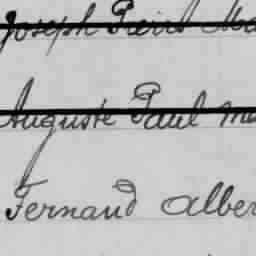 Joseph Pierre Ma
Auguste Paul Me
Fernand Alber